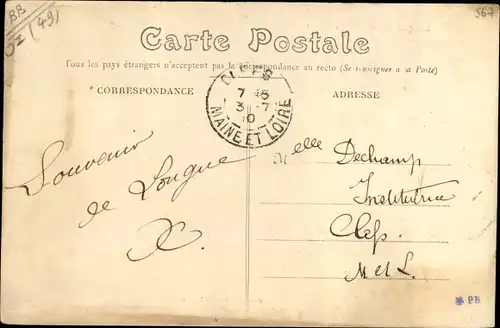 BB
(49)
567
Carte Postale
Tous les pays étrangers n'acceptent pas la correspondance au recto (Se renseigner à la Poste)
* CORRESPONDANCE
ADRESSE
7 45
3 -7
10
MAINE ET LOIRE
Souvenir
de Longué
Melle Dechamp
Institutrice
Clefs.
M et L.
BB